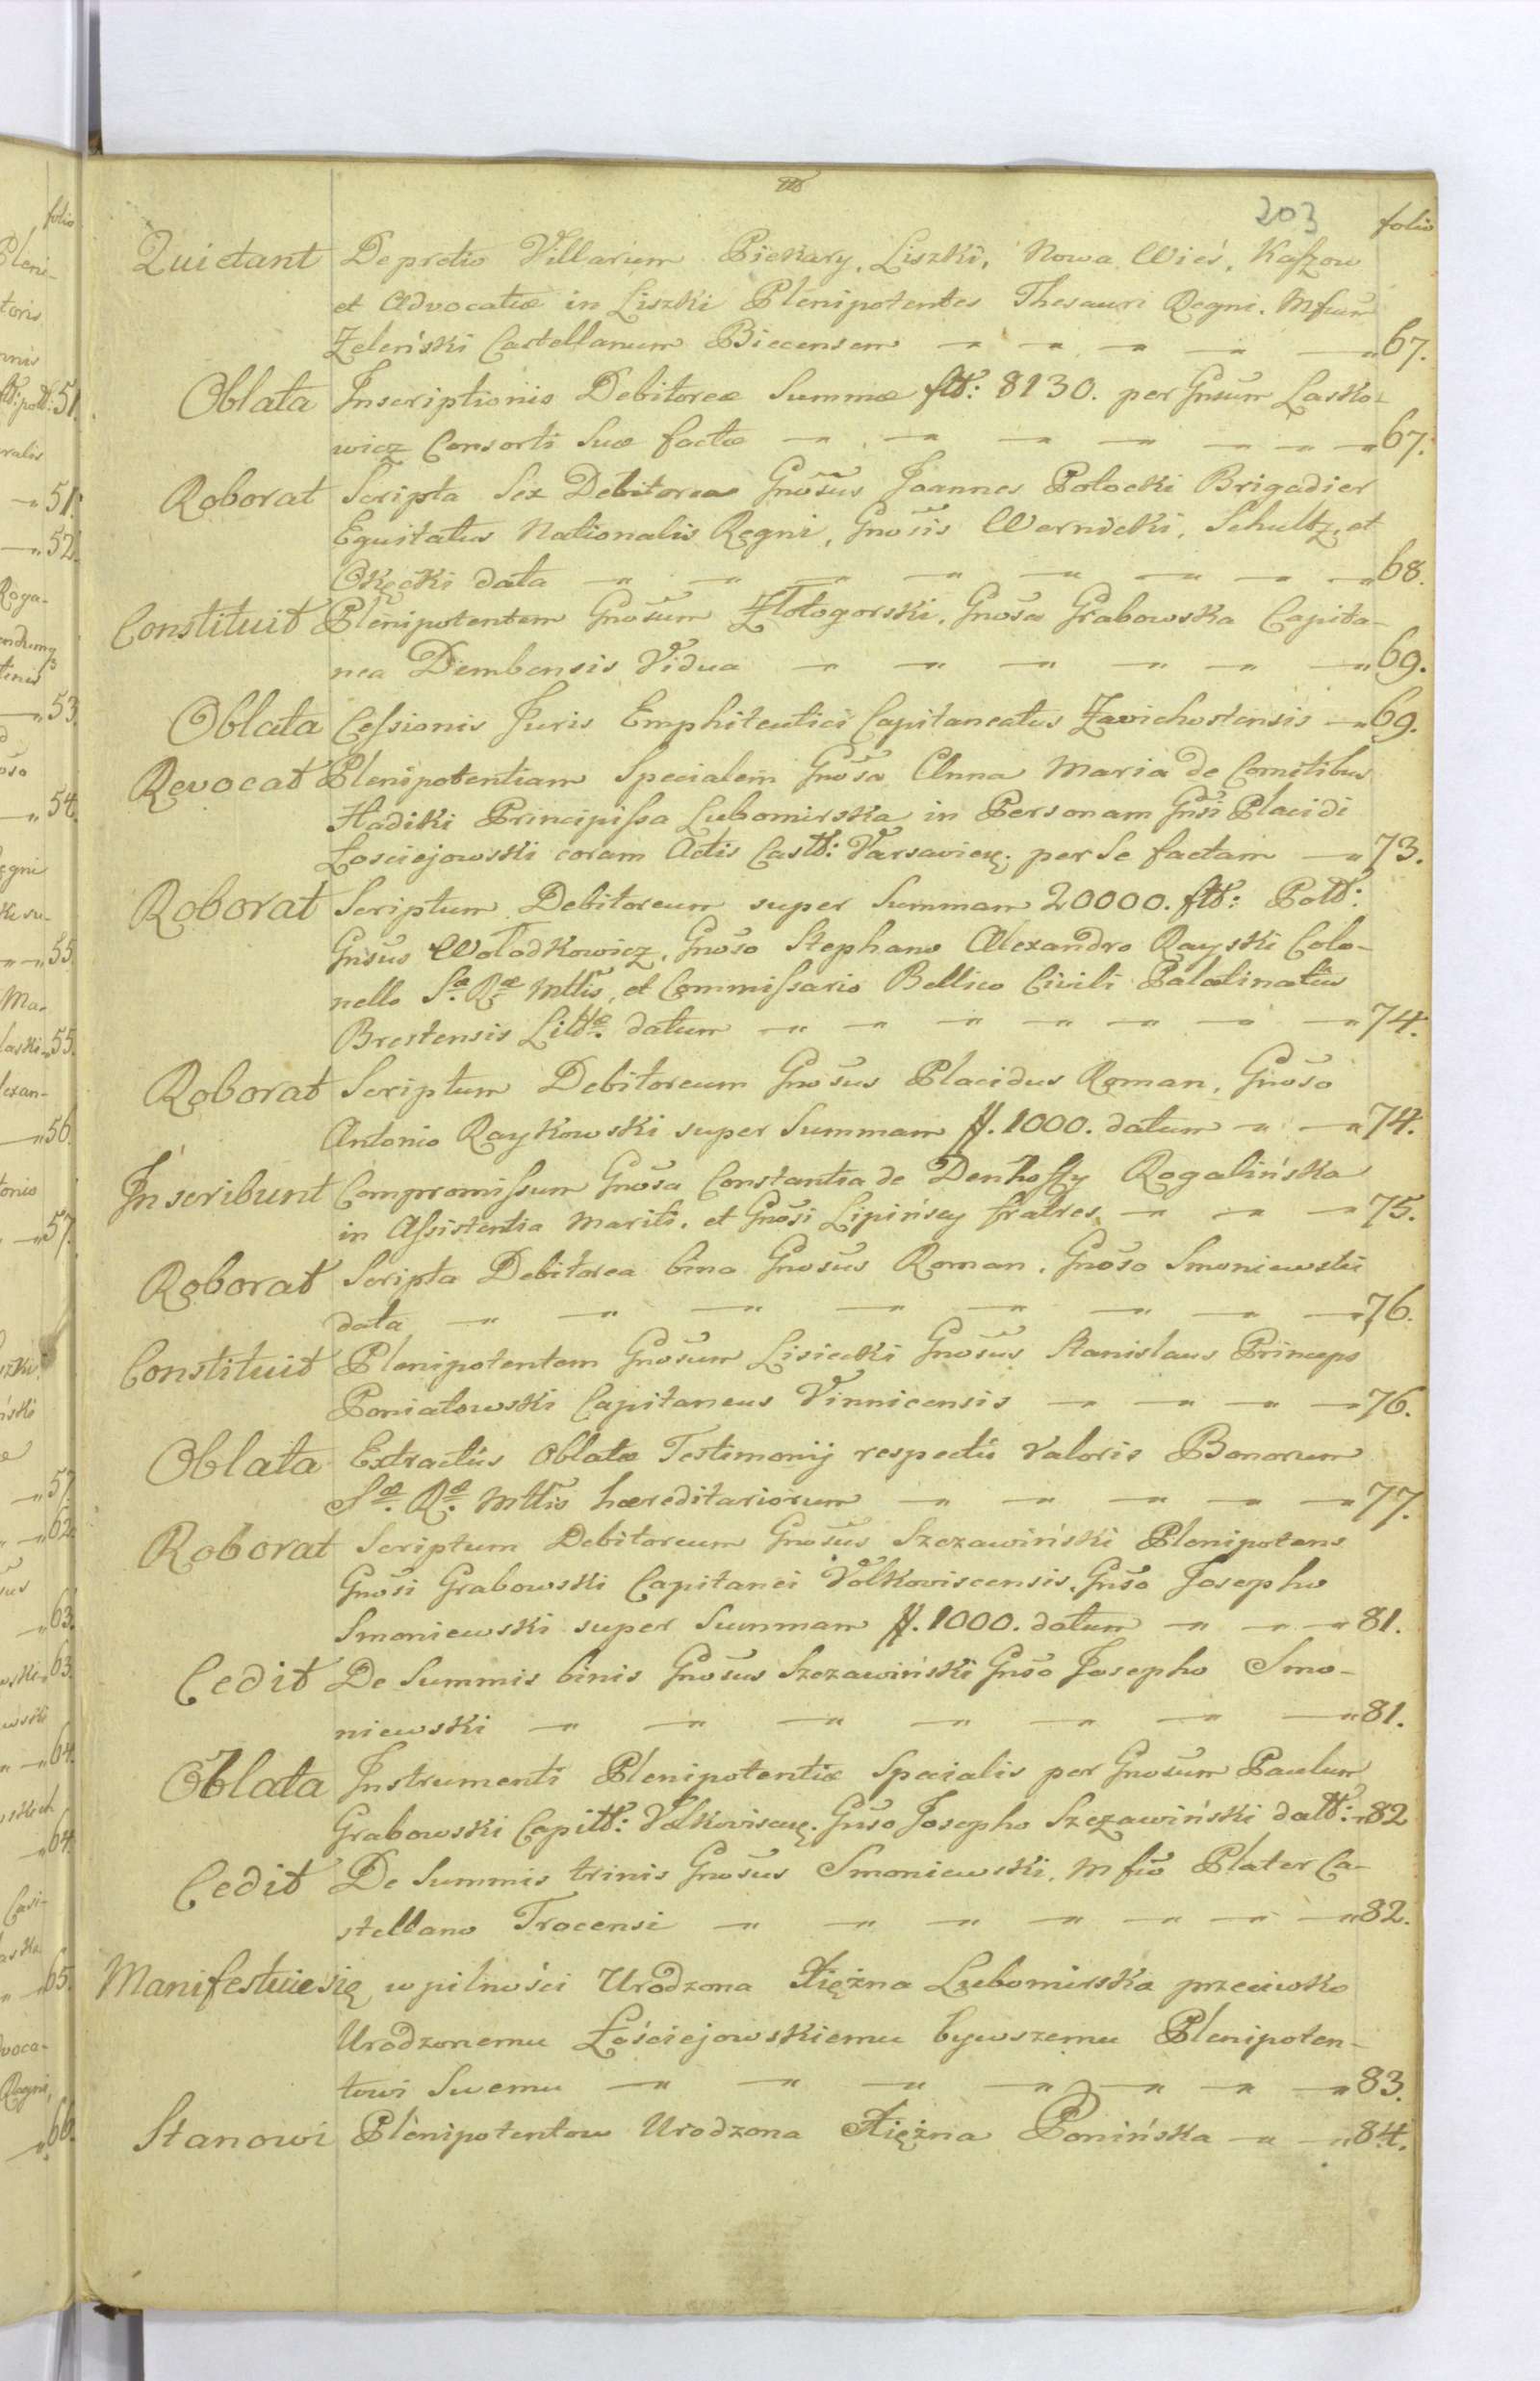 203 folio
Quietant De pretio Villarum Piekary, Liszki, Nowa Wieś, Kaszow
et Advocatiæ in Liszki Plenipotentes Thesauri Regni. Mfcum
Zeleński Castellanum Biecensem 67.
Oblata Inscriptionis Debitoreæ Summæ fltt: 8130. per Gnsum Lasko-
wicz Consorti Suæ factæ 67.
Roborat Scripta Sex Debitorea Gnosus Joannes Potocki Brigadier
Equitatus Nationalis Regni, Gnosis Wernicki, Schultz, et
Okęcki data 68.
Constituit Plenipotentem Gnosum Złotogorski, Gnosa Grabowska Capita-
nea Dembensis Vidua 69.
Oblata Cessionis Juris Emphiteutici Capitaneatus Zavichostensis 69.
Revocat Plenipotentiam Specialem Gnosa Anna Maria de Comitibus
Hadiki Principissa Lubomirska in Personam Gnsi Placidi
Łosciejowski coram Actis Castt: Varsavien: per Se factam 73.
Roborat Scriptum Debitoreum super Summam 20000. fltt: Poltt:
Gnsus Wołodkowicz, Gnoso Stephano Alexandro Rayski Colo-
nello Sæ Ræ Mttis, et Commissario Bellico Civili Palatinatus
Brestensis Littæ datum 74.
Roborat Scriptum Debitoreum Gnosus Placidus Roman, Gnoso
Antonio Raykowski super Summam ff. 1000. datum 74.
Inscribunt Compromissum Gnosa Constantia de Denhoffy Rogalińska
in Assistentia Mariti, et Gnosi Lipińscy fratres 75.
Roborat Scripta Debitorea bina Gnosus Roman, Gnoso Smoniewski
data 76.
Constituit Plenipotentem Gnosum Lisiecki Gnosus Stanislaus Princeps
Poniatowski Capitaneus Vinnicensis 76.
Oblata Extractus Oblatæ Testimonij respectu Valoris Bonorum
Sæ. Ræ. Mttis hæreditariorum 77.
Roborat Scriptum Debitoreum Gnosus Szczawiński Plenipotens
Gnosi Grabowski Capitanei Volkoviscensis, Gnso Josepho
Smoniewski super Summam ff. 1000. datum 81.
Cedit De Summis binis Gnosus Szczawiński Gnso Josepho Smo-
niewski 81.
Oblata Instrumenti Plenipotentiæ Specialis per Gnosum Paulum
Grabowski Capitt: Volkoviscen: Gnso Josepho Szczawiński datt: 82
Cedit De Summis trinis Gnosus Smoniewski, Mfco Plater Ca-
stellano Trocensi 82.
Manifestuie się w pilności Urodzona Xiężna Lubomirska przeciwko
Urodzonemu Łościejowskiemu bywszemu Plenipoten-
towi Swemu 83.
Stanowi Plenipotentow Urodzona Xiężna Ponińska 84.